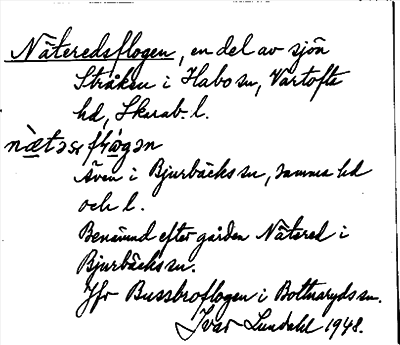 Näteredsflogen, en del av sjön
Stråken i Habo sn, Vartofta
hd, Skarab. l.
Även i Bjurbäcks sn, samma hd
och l.
Benämnd efter gården Nätered i
Bjurbäcks sn.
Jfr Bussbroflogen i Bottnaryds sn.
Ivar Lundahl 1948.